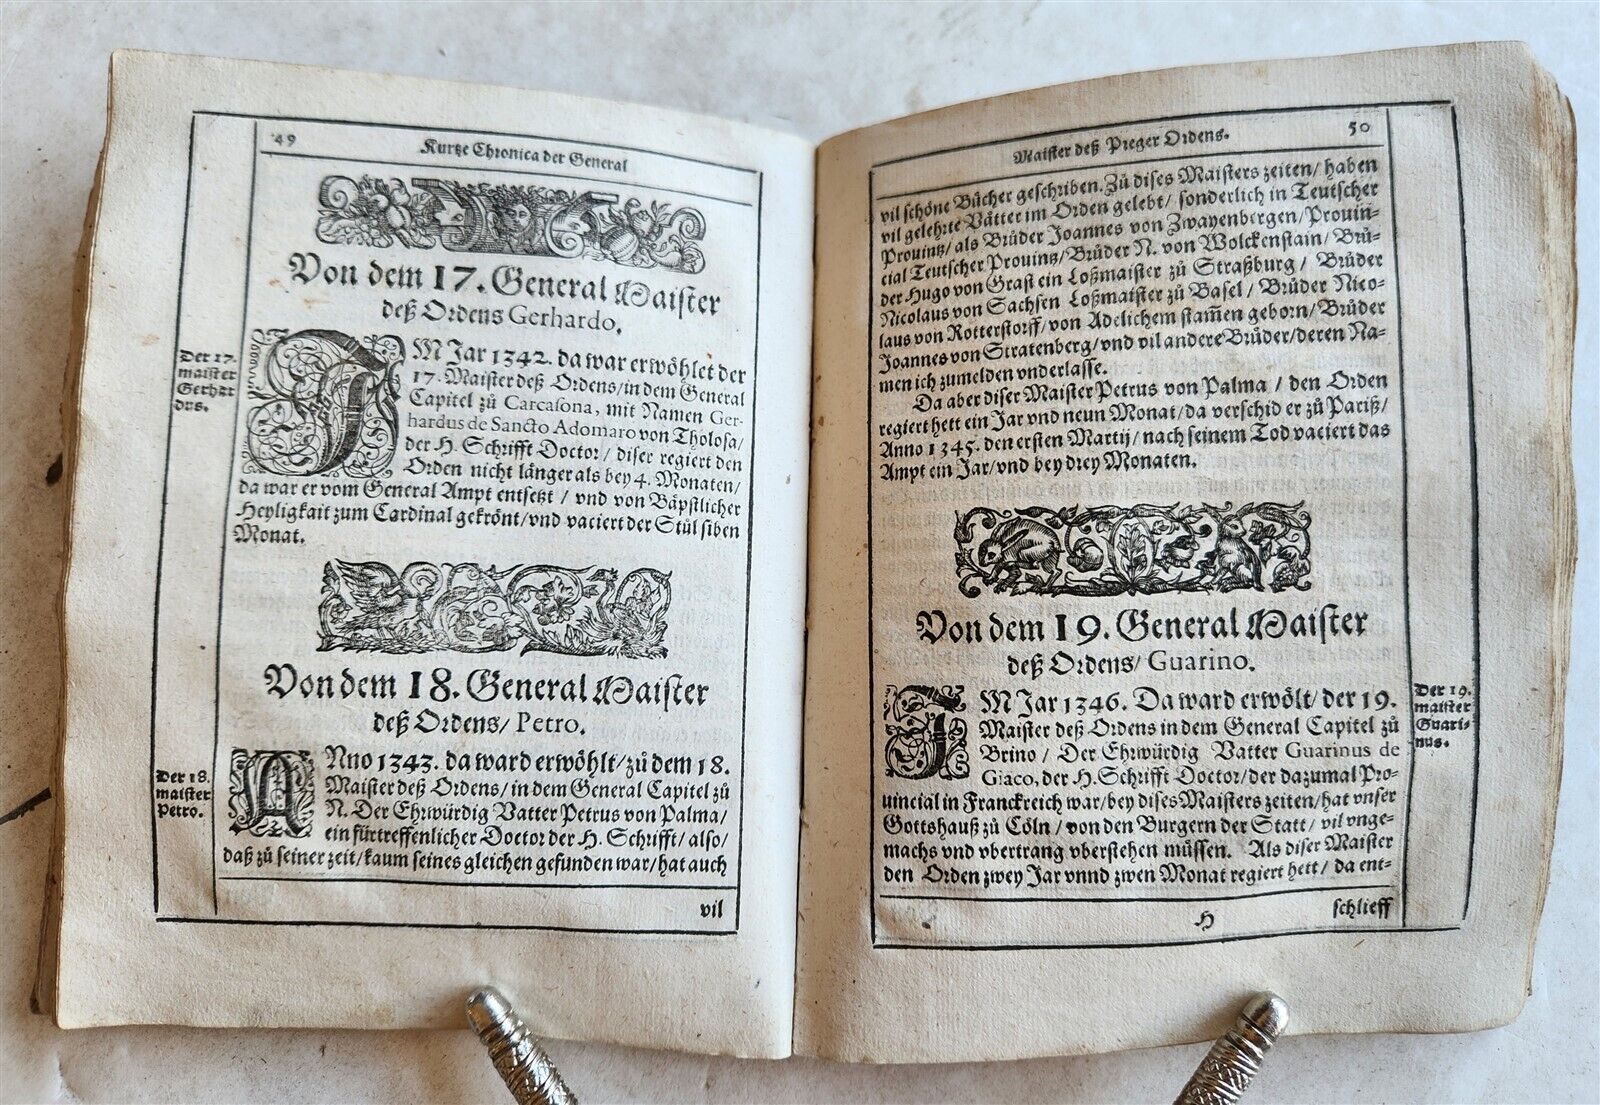 49
Kurtze Chronica der General
Von dem 17. General Maister
deß Ordens Gerhardo.
Der 17.
maister
Gerhar
dus.
IM Jar 1342. da war erwöhlet der
17. Maister deß Ordens/in dem General
Capitel zů Carcasona, mit Namen Ger-
hardus de Sancto Adomaro von Tholosa/
der H. Schrifft Doctor/ diser regiert den
Orden nicht länger als bey 4. Monaten/
da war er vom General Ampt entsetzt / vnd von Bäpstlicher
Heyligkait zum Cardinal gekrönt/vnd vaciert der Stůl siben
Monat.
Von dem 18. General Maister
deß Ordens/ Petro.
Der 18.
maister
Petro.
ANno 1343. da ward erwöhlt/zů dem 18.
Maister deß Ordens/ in dem General Capitel zů
N. Der Ehrwürdig Vatter Petrus von Palma/
ein fürtreffenlicher Doctor der H. Schrifft/ also/
daß zů seiner zeit/kaum seines gleichen gefunden war/hat auch
vil
Maister deß Preger Ordens.
50
vil schöne Bücher geschriben. Zů dises Maisters zeiten/ haben
vil gelehrte Vätter im Orden gelebt/ sonderlich in Teutscher
Prouintz/ als Brůder Joannes von Zwayenbergen/Prouin-
cial Teutscher Prouintz/Brůder N. von Wolckenstain/ Brů-
der Hugo von Grast ein Loßmaister zů Straßburg / Brůder
Nicolaus von Sachsen Loßmaister zů Basel / Brůder Nico-
laus von Rotterstorff/von Adelichem stam̃en geborn/Brůder
Joannes von Stratenberg/vnd vil andere Brůder/deren Na-
men ich zumelden vnderlasse.
Da aber diser Maister Petrus von Palma / den Orden
regiert hett ein Jar vnd neun Monat/da verschid er zů Pariß/
Anno 1345. den ersten Martij/ nach seinem Tod vaciert das
Ampt ein Jar/vnd bey drey Monaten.
Von dem 19. General Maister
deß Ordens/ Guarino.
IM Jar 1346. Da ward erwölt/ der 19.
Maister deß Ordens in dem General Capitel zů
Brino / Der Ehrwürdig Vatter Guarinus de
Giaco, der H. Schrifft Doctor/der dazumal Pro-
uincial in Franckreich war/bey dises Maisters zeiten/hat vnser
Gottshauß zů Cöln / von den Burgern der Statt / vil vnge-
machs vnd vbertrang vberstehen müssen. Als diser Maister
den Orden zwey Jar vnnd zwen Monat regiert hett / da ent-
Der 19.
maister
Guari-
nus.
H
schlieff